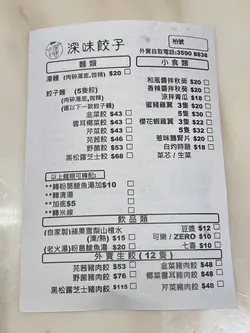 深味餃子
柏號
外賣自取電話:3590 8838
麵類
湯麵 (肉碎湯底,微辣) $20
餃子麵 (5隻餃)
(肉碎湯底,微辣)
(選以下一款餃子麵)
韭菜餃 $43
雲耳椰菜餃 $43
芹菜餃 $43
芫茜餃 $46
野菌餃 $53
黑松露芝士餃 $68
以上麵類可轉配:
**轉粉葛鯪魚湯加$10
**轉清湯
**加底$5
**轉米線
小食類
和風醬拌秋葵 $20
香辣醬拌秋葵 $20
涼拌青瓜 $18
蜜糖雞翼 3隻 $22
5隻 $30
櫻花蝦雞翼 3隻 $22
5隻 $32
惹味鵝片 $20
白灼時蔬 $18
菜芯 / 生菜
飲品類
(自家製)蘋果雪梨山楂水
(凍/熱) $15
(老火湯)粉葛鯪魚湯 $20
豆漿 $12
可樂 / ZERO $10
七喜 $10
外賣生餃 (12隻)
芫茜豬肉餃 $53
野菌豬肉餃 $68
黑松露芝士豬肉餃 $115
韭菜豬肉餃 $48
椰菜雲耳豬肉餃 $48
芹菜豬肉餃 $48